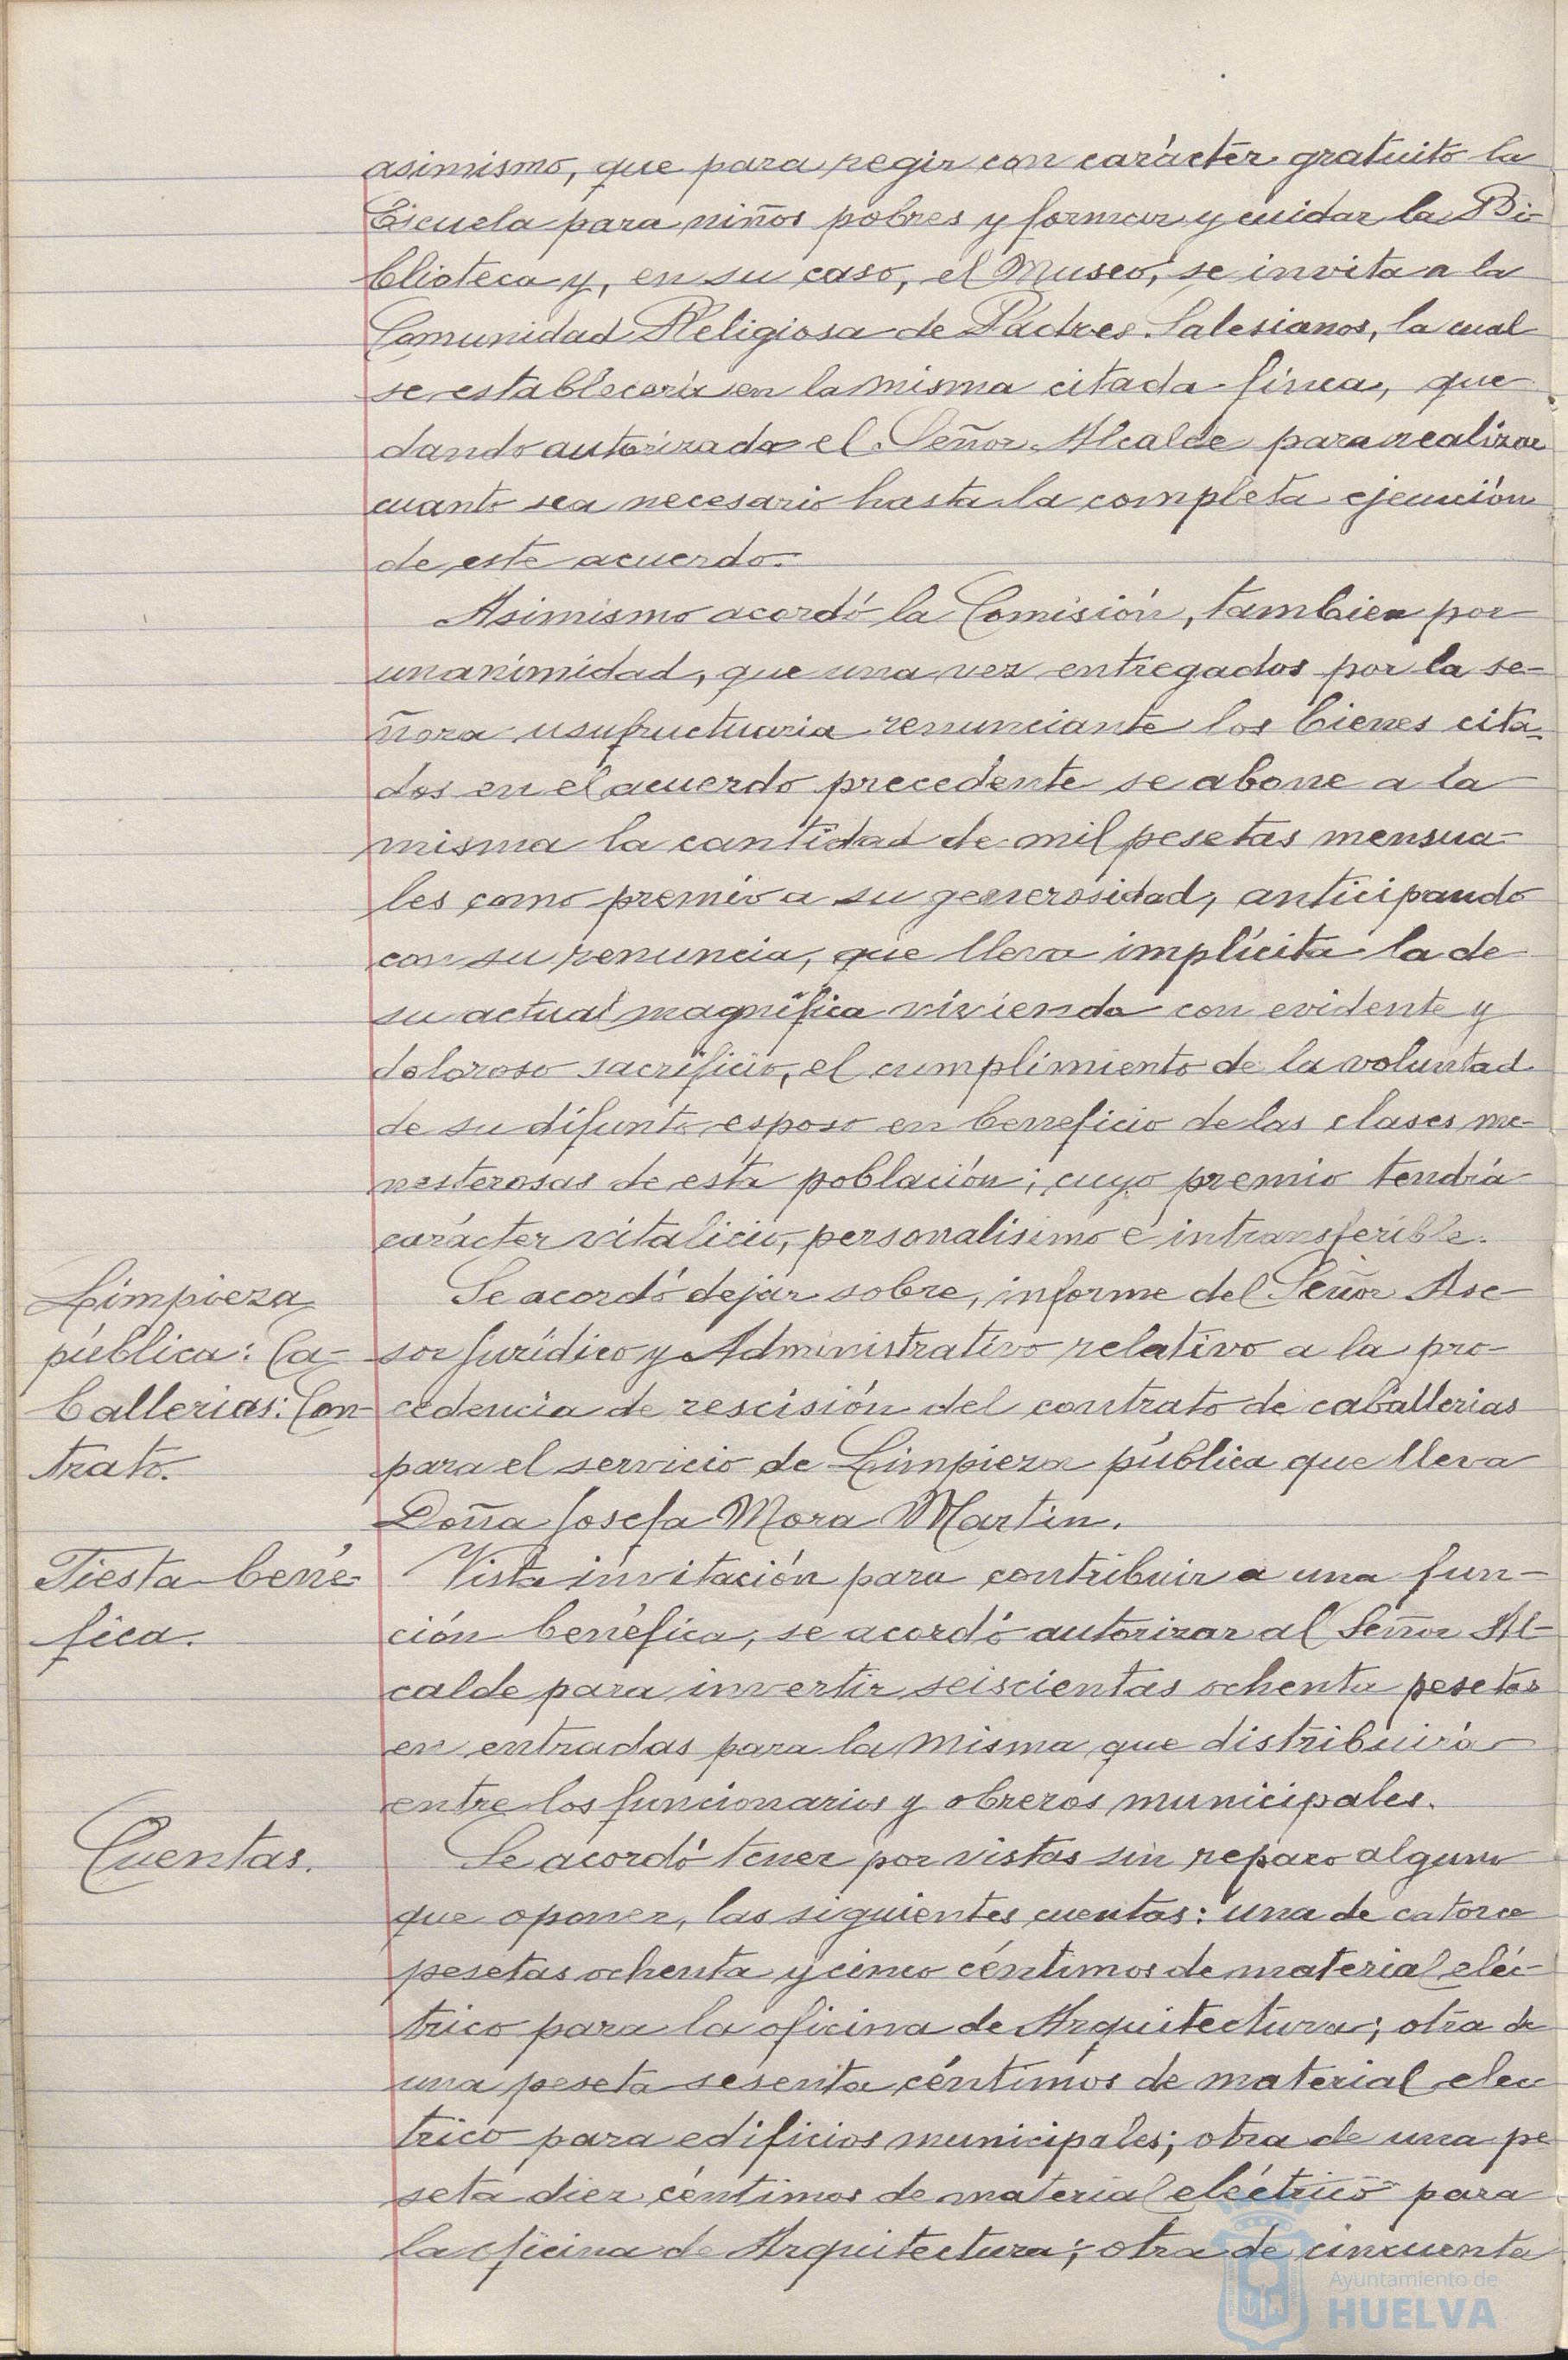 asimismo, que para regir con carácter gratuito la
Escuela para niños pobres y formar y cuidar la Bi-
blioteca y, en su caso, el Museo, se invita a la
Comunidad Religiosa de Padres Salesianos, la cual
se establecería en la misma citada finca, que-
dando autorizado el Señor Alcalde para realizar
cuanto sea necesario hasta la completa ejecución
de este acuerdo.
Asimismo acordó la Comisión, tambien por
unanimidad, que una vez entregados por la se-
ñora usufructuaria renunciante los bienes cita-
dos en el acuerdo precedente se abone a la
misma la cantidad de mil pesetas mensua-
les como premio a su generosidad, anticipando
con su renuncia, que lleva implícita la de
su actual magnífica vivienda con evidente y
doloroso sacrificio, el cumplimiento de la voluntad
de su difunto esposo en beneficio de las clases me-
nesterosas de esta población; cuyo premio tendrá
carácter vitalicio, personalisimo é intransferible.
Limpieza
pública: Ca-
ballerias: Con-
trato.
Se acordó dejar sobre, informe del Señor Ase-
sor Jurídico y Administrativo relativo a la pro-
cedencia de rescisión del contrato de caballerias
para el servicio de Limpieza pública que lleva
Doña Josefa Mora Martin.
Fiesta bené-
fica.
Vista invitación para contribuir a una fun-
ción benéfica, se acordó autorizar al Señor Al-
calde para invertir seiscientas ochenta pesetas
en entradas para la misma que distribuirá
entre los funcionarios y obreros municipales.
Cuentas.
Se acordó tener por vistas sin reparo alguno
que oponer, las siguientes cuentas: una de catorce
pesetas ochenta y cinco céntimos de material eléc-
trico para la oficina de Arquitectura; otra de
una peseta sesenta céntimos de material elec
trico para edificios municipales; otra de una pe
seta diez céntimos de material eléctrico para
la oficina de Arquitectura; otra de cincuenta
Ayuntamiento de
HUELVA